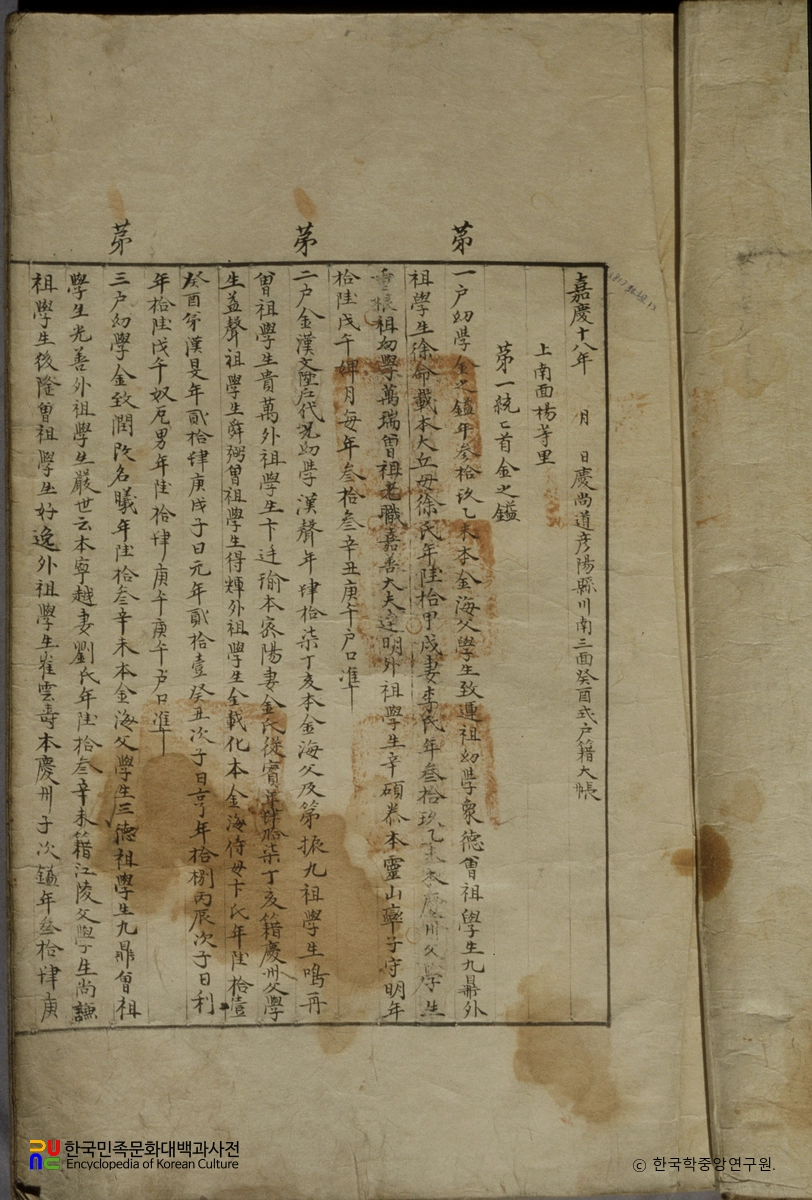 嘉慶十八年 月 日慶尚道彦陽縣川南三面癸酉式戶籍大帳
上南面楊等里
第一統統首金之鎰
第一户幼學金之鎰年叁拾玖乙未本金海父學生致運祖幼學衆德曾祖學生九鼎外
祖學生徐命載本大丘母徐氏年陸拾甲戌妻李氏年叁拾玖乙未本慶州父學生
祖幼學萬瑞曾祖老職嘉善大夫達明外祖學生辛碩泰本靈山率子守明年
拾陸戊午婢月每年叁拾叁辛丑庚午户口准
第二户金漢文陞户代兄幼學漢聲年肆拾柒丁亥本金海父及第振九祖學生鳴再
曾祖學生貴萬外祖學生卞廷瑜本密陽妻金氏從實年肆拾柒丁亥籍慶州父學
生益聲祖學生舜弼曾祖學生得輝外祖學生金載化本金海侍母卞氏年陸拾壹
癸酉弟漢旻年貳拾肆庚戌子日元年貳拾壹癸丑次子日亨年拾捌丙辰次子日利
年拾陸戊午奴尼男年陸拾肆庚午庚午户口准
第三户幼學金致潤改名曦年陸拾叁辛未本金海父學生三德祖學生九鼎曾祖
學生光善外祖學生嚴世云本寧越妻劉氏年陸拾叁辛未籍江陵父學生尚謙
祖學生後隆曾祖學生好逸外祖學生崔雲壽本慶州子次鎰年叁拾肆庚
한국민족문화대백과사전
Encyclopedia of Korean Culture
© 한국학중앙연구원.